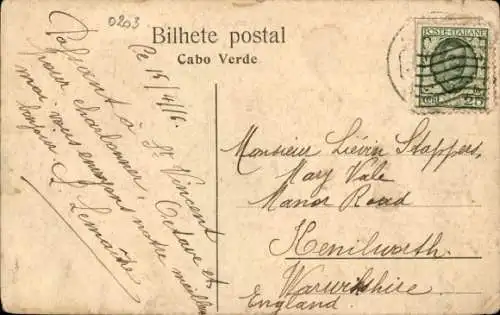 0203
Bilhete postal
Cabo Verde
POSTE·ITALIANE
CENT. 25
Ce 15/4/16.
Passant à St Vincent
pour charbonner, Octave et
moi vous envoyons notre meilleur
bonjour.
L. Lemaître
Monsieur Liévin Stappers,
Mary Vale
Manor Road
Kenilworth.
Warwikshire
England.